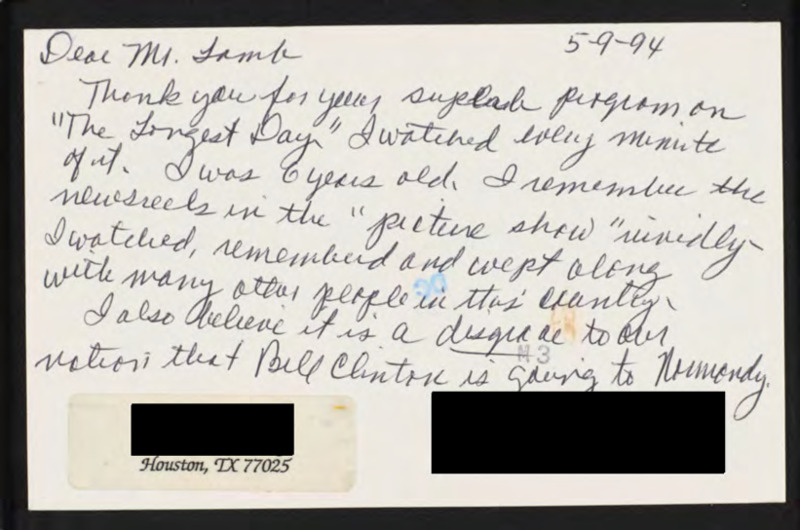 Dear Mr. Lamb 5-9-94
Thank you for your superb program on
"The Longest Day." I watched every minute
of it. I was 6 years old. I remember the
newsreels in the "picture show" vividly-
I watched, remembered and wept along
with many other people in this country.
I also believe it is a disgrace to our
nation that Bill Clinton is going to Normandy.
M3
Houston, TX 77025